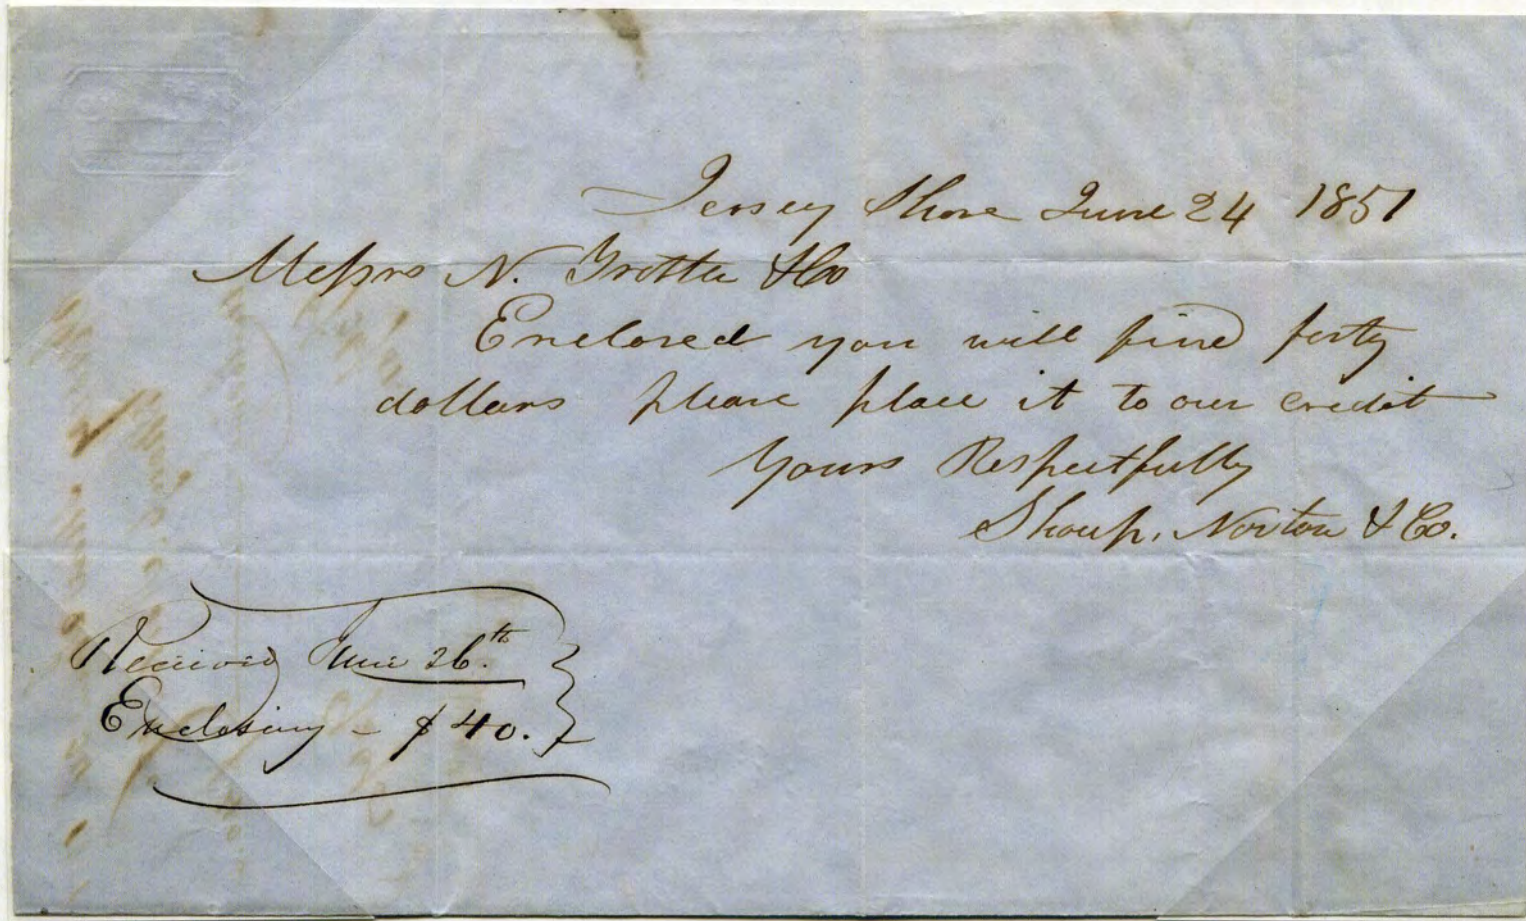 Jersey Shore June 24 1851
Messrs N. Trotter & Co
Enclosed you will find forty
dollars please place it to our credit
Yours Respectfully
Shoup, Norton & Co.
Received June 26.th
Enclosing - $40.